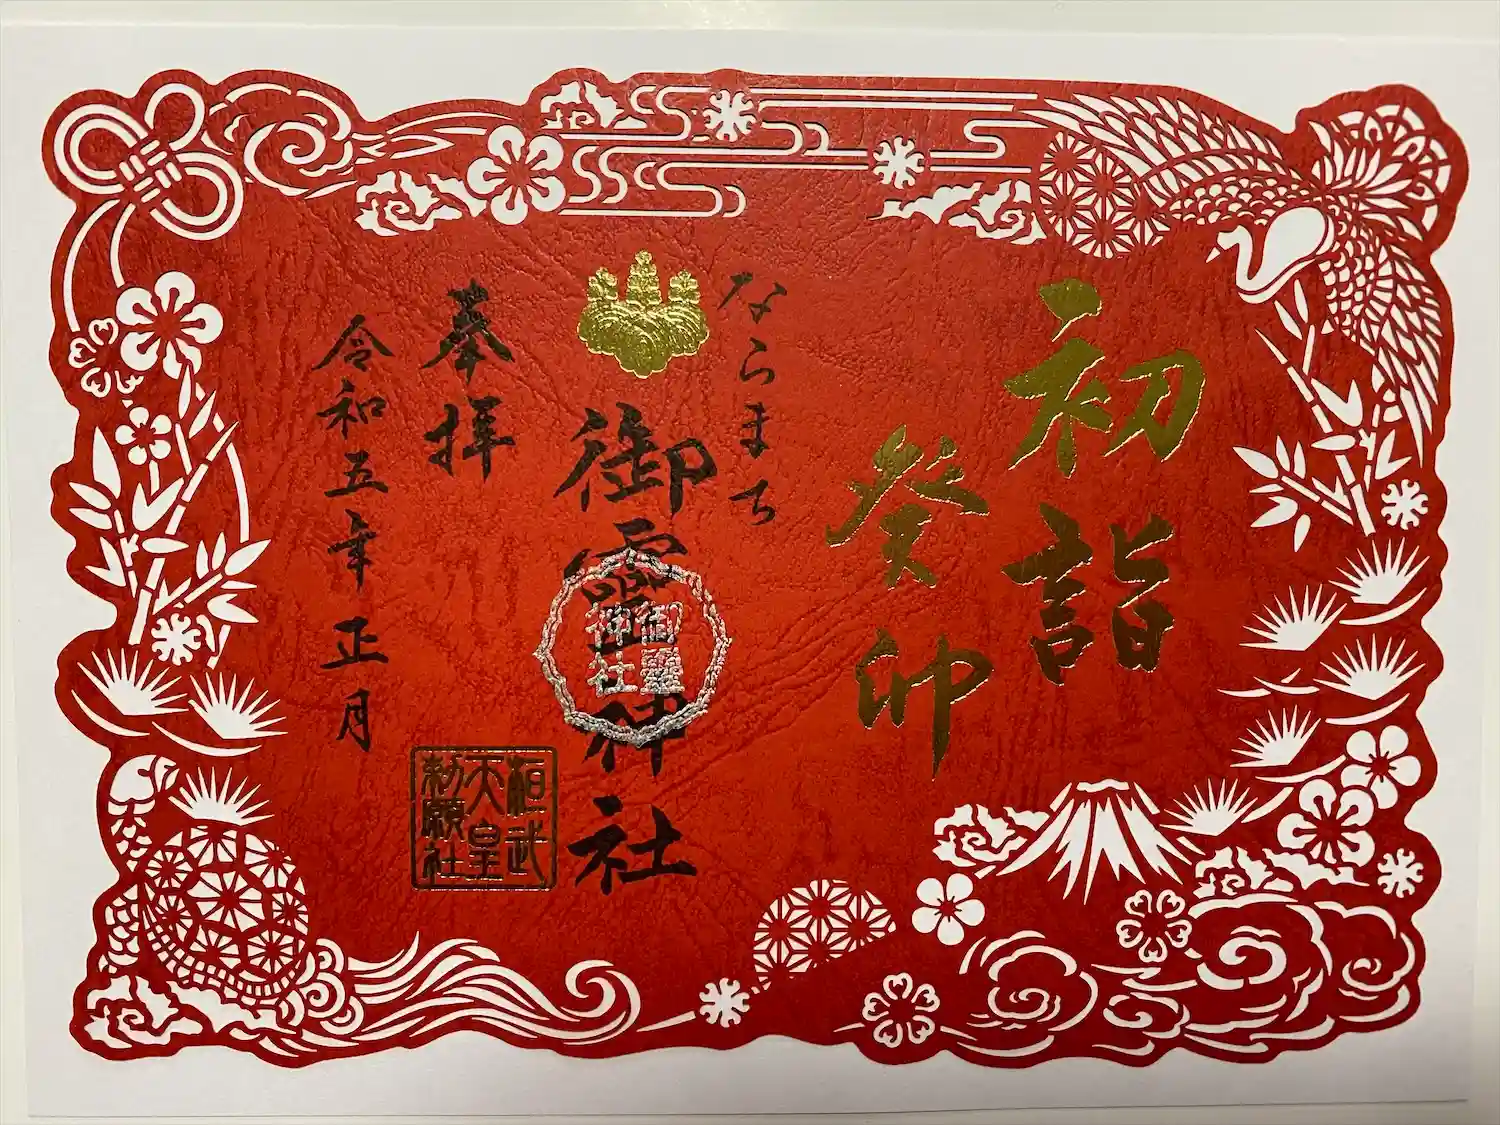 初詣
癸卯
ならまち
御霊神社
御靈
神社
奉拝
令和五年正月
桓武
天皇
勅願社